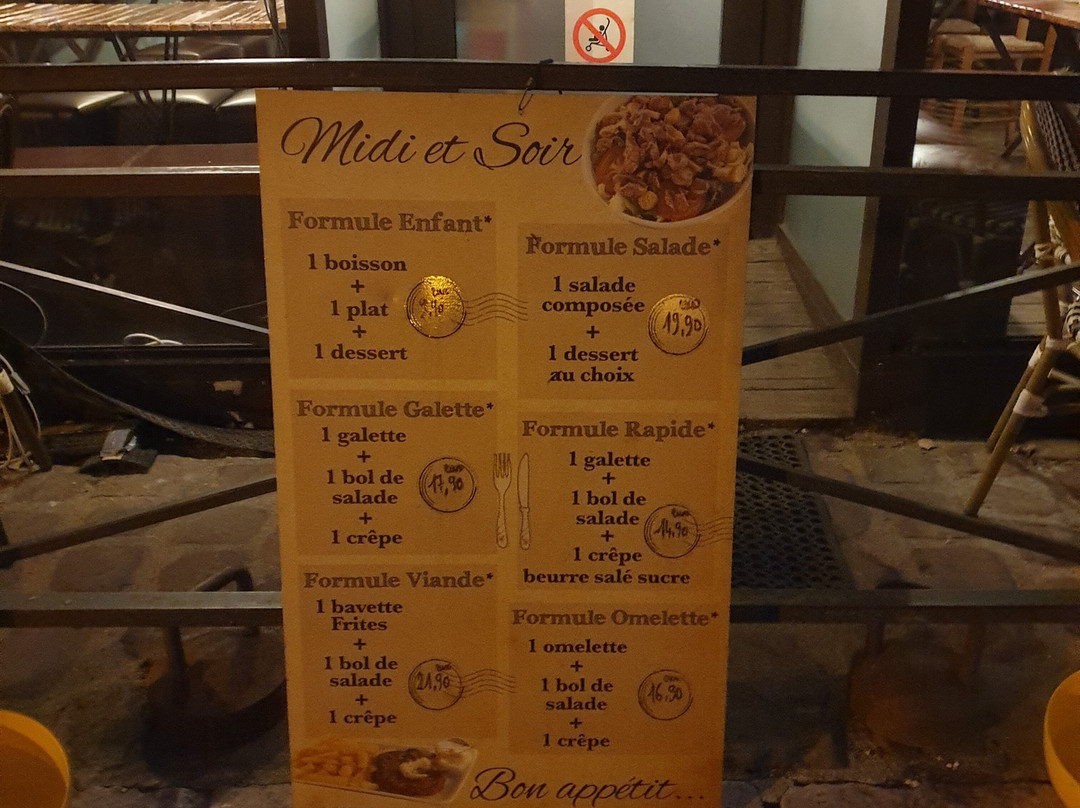 Midi et Soir
Formule Enfant*
1 boisson
+
1 plat
+
1 dessert
Formule Salade*
1 salade
composée
+
1 dessert
au choix
19,90
Formule Galette*
1 galette
+
1 bol de
salade
+
1 crêpe
17,90
Formule Rapide*
1 galette
+
1 bol de
salade
+
1 crêpe
beurre salé sucre
14,90
Formule Viande*
1 bavette
Frites
+
1 bol de
salade
+
1 crêpe
21,90
Formule Omelette*
1 omelette
+
1 bol de
salade
+
1 crêpe
16,90
Bon appétit...